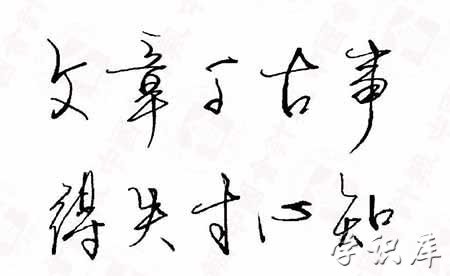 文章千古事
得失寸心知
学识库